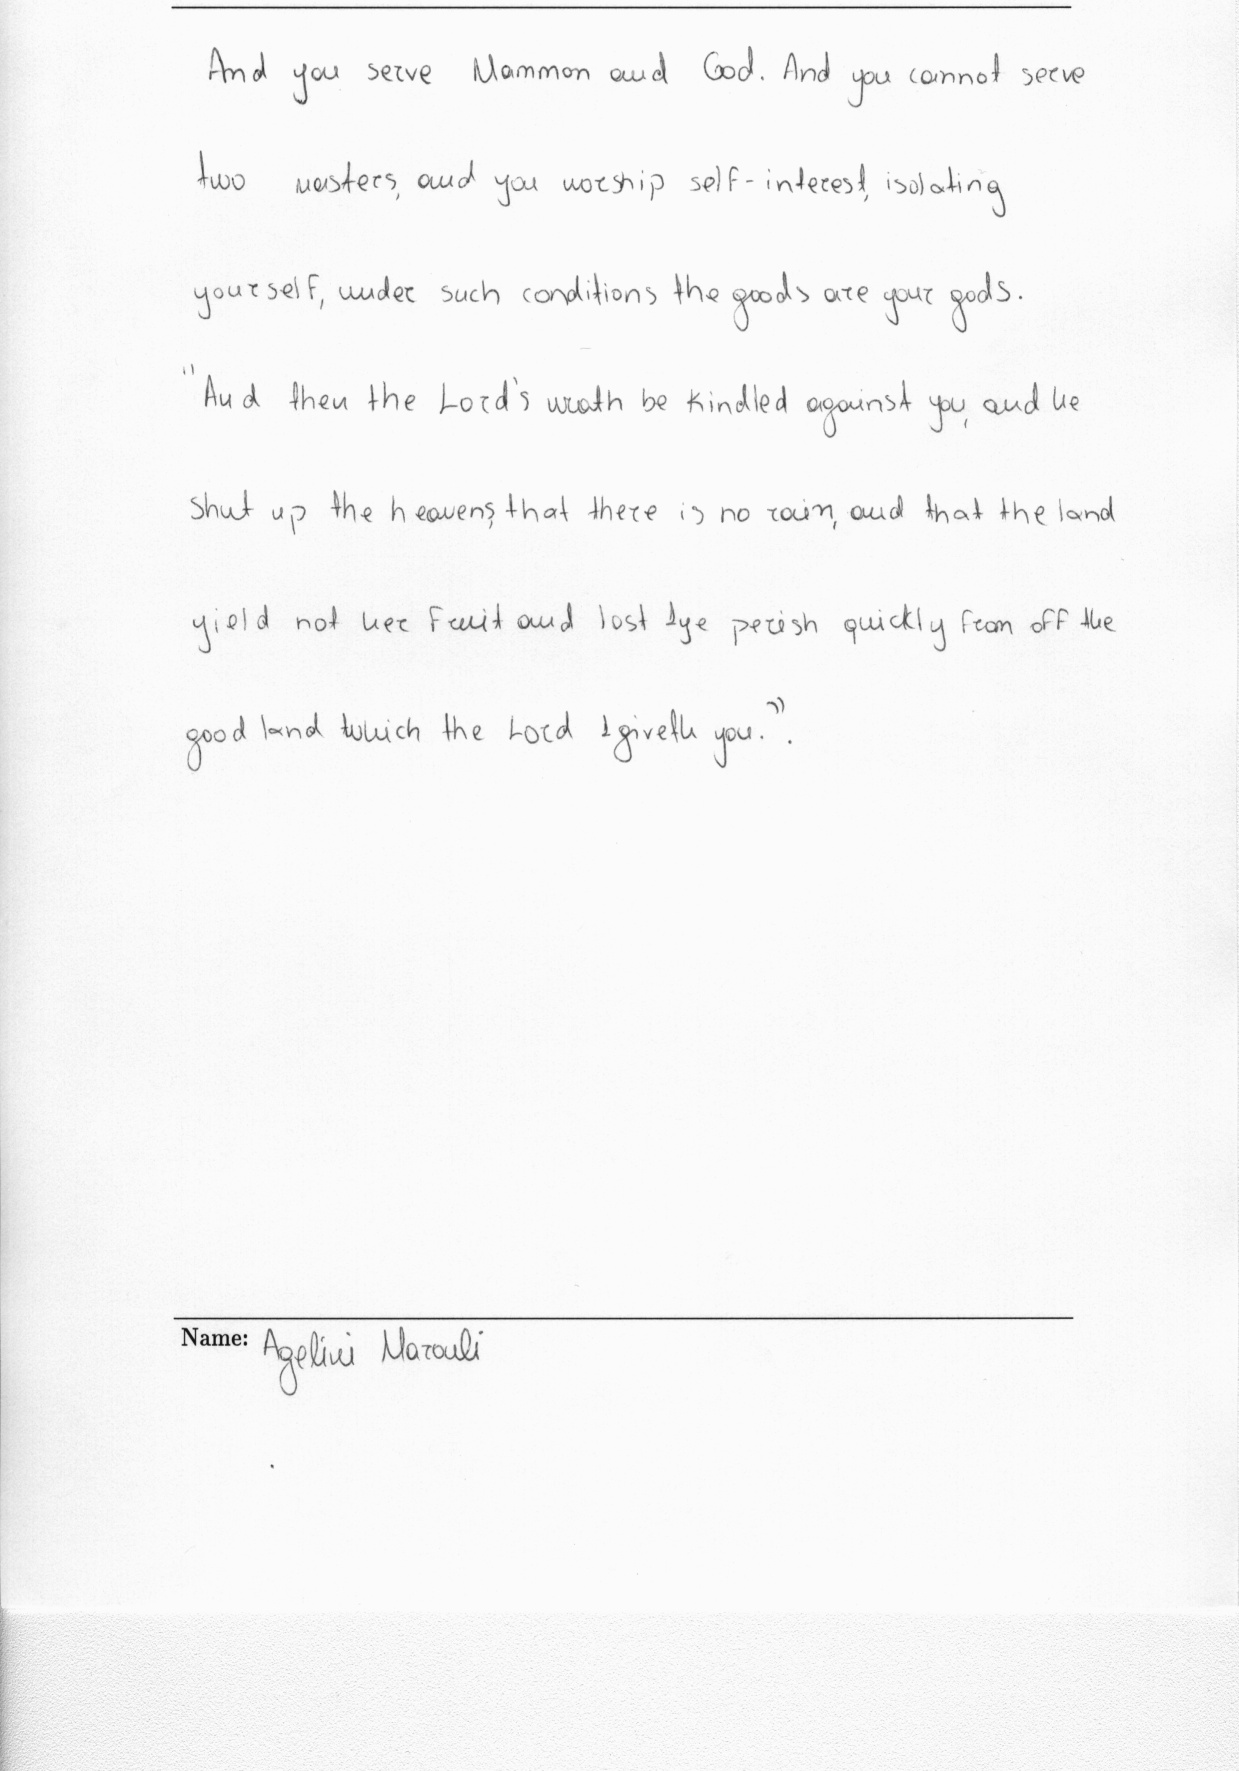 And you serve Mammon and God. And you cannot serve
two masters, and you worship self-interest, isolating
yourself, under such conditions the goods are your gods.
"And then the Lord's wrath be kindled against you, and he
shut up the heavens, that there is no rain, and that the land
yield not her fruit and lost 1ye perish quickly from off the
good land which the Lord 1giveth you.".
Name: Agelini Marouli